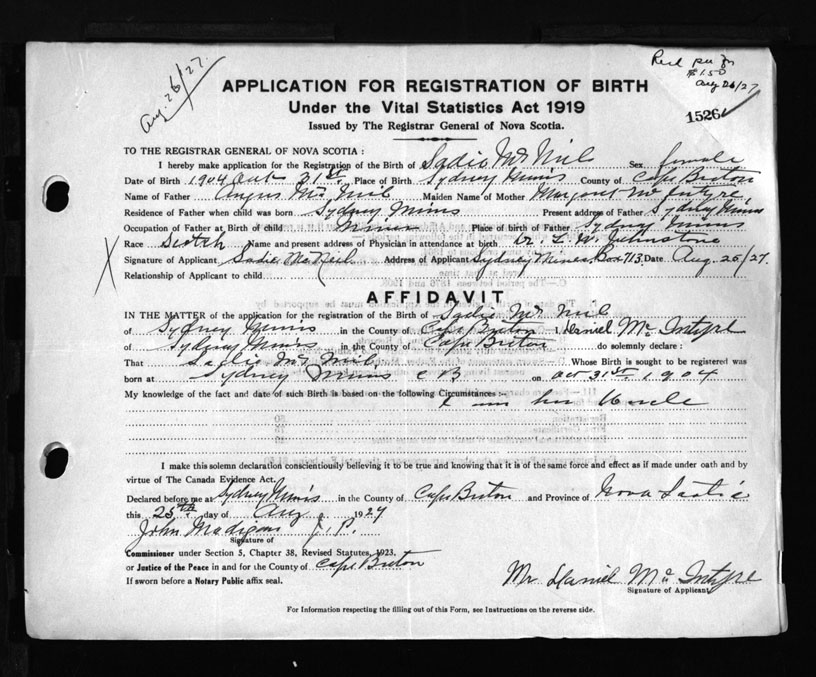 Aug. 26/27.
Rec'd per
$1.50
Aug 26/27
15264
APPLICATION FOR REGISTRATION OF BIRTH
Under the Vital Statistics Act 1919
Issued by The Registrar General of Nova Scotia.
TO THE REGISTRAR GENERAL OF NOVA SCOTIA :
I hereby make application for the Registration of the Birth of Sadie McNeil Sex female
Date of Birth 1904 Oct 31st Place of Birth Sydney Mines County of Cape Breton
Name of Father Angus McNeil Maiden Name of Mother Margaret McIntyre
Residence of Father when child was born Sydney Mines Present address of Father Sydney Mines
Occupation of Father at Birth of child Miner Place of birth of Father Sydney Mines
Race Scotch Name and present address of Physician in attendance at birth Dr. L. W. Johnstone
Signature of Applicant Sadie McNeil Address of Applicant Sydney Mines, Box 713. Date Aug. 25/27.
Relationship of Applicant to child
AFFIDAVIT
IN THE MATTER of the application for the registration of the Birth of Sadie McNeil
of Sydney Mines in the County of Cape Breton I, Daniel McIntyre
of Sydney Mines in the County of Cape Breton do solemnly declare :
That Sadie McNeil Whose Birth is sought to be registered was
born at Sydney Mines C B on Oct 31st 1904
My knowledge of the fact and date of such Birth is based on the following Circumstances :- I am her Uncle
I make this solemn declaration conscientiously believing it to be true and knowing that it is of the same force and effect as if made under oath and by
virtue of The Canada Evidence Act.
Declared before me at Sydney Mines in the County of Cape Breton and Province of Nova Scotia
this 25th day of Aug 1927
John Madigan J.P.
Signature of
Commissioner under Section 5, Chapter 38, Revised Statutes, 1923.
or Justice of the Peace in and for the County of Cape Breton
If sworn before a Notary Public affix seal.
Mr Daniel McIntyre
Signature of Applicant
For Information respecting the filling out of this Form, see Instructions on the reverse side.